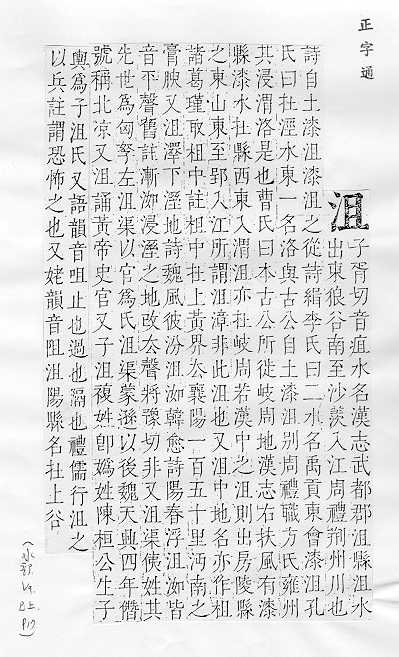 正字通
沮 子胥切音疽水名漢志武都郡沮縣沮水
出東狼谷南至沙羨入江周禮荊州川也
詩自土漆沮漆沮之從詩緝李氏曰二水名禹貢東會漆沮孔
氏曰在涇水東一名洛與古公自土漆沮别周禮職方氏雍州
其浸渭洛是也曹氏曰本古公所徙岐周地漢志右扶風有漆
縣漆水在縣西東入渭沮亦在岐周若漢中之沮則出房陵縣
之東山東至郢入江所謂沮漳非此沮也又沮中地名亦作柤
諸葛瑾取柤中註柤中在上黃界去襄陽一百五十里沔南之
膏腴又沮澤下溼地詩魏風彼汾沮洳韓愈詩陽春浮沮洳皆
音平聲舊註漸洳浸溼之地改去聲將豫切非又沮渠姓其
先世爲匈孥左沮渠以官爲氏沮渠蒙遜以後魏天興四年僭
號稱北凉又沮誦黃帝史官又子沮複姓卽嬀姓陳桓公生子
輿爲子沮氏又語韻音咀止也過也也禮儒行沮之
以兵註謂恐怖之也又姥韻音阻沮陽縣名在上谷